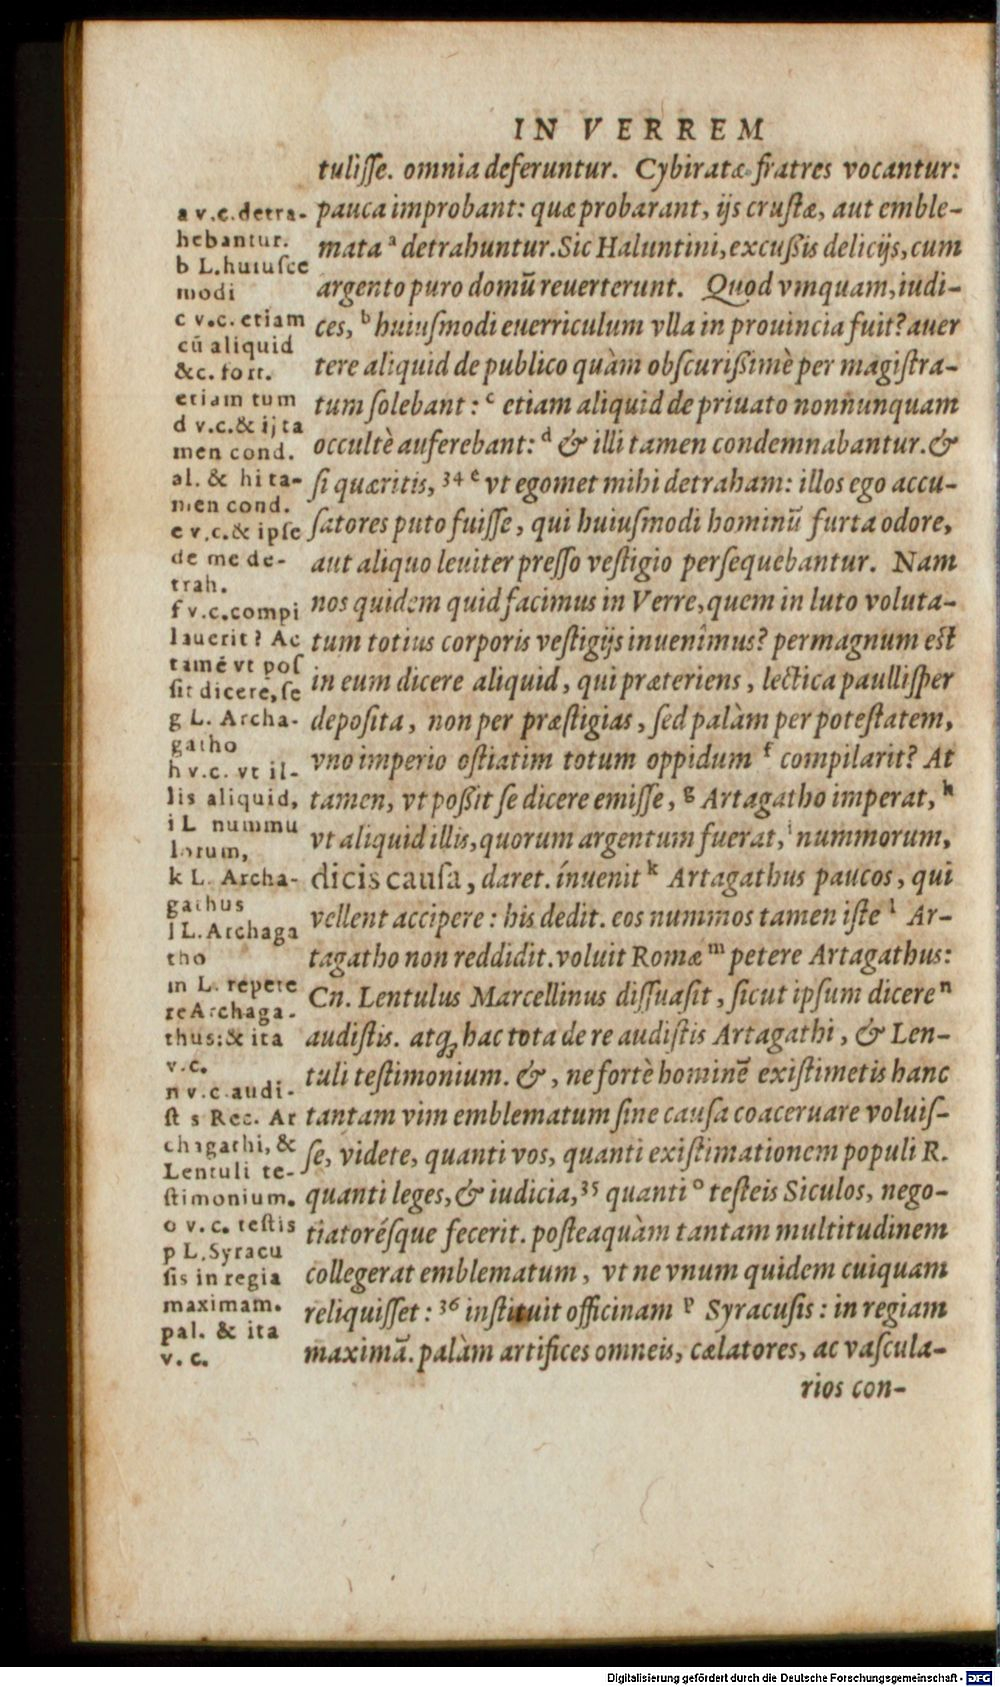 IN VERREM
tulisse. omnia deferuntur. Cybiratæ fratres vocantur:
pauca improbant: quæ probarant, ijs crustæ, aut emble-
mata ᵃ detrahuntur. Sic Haluntini, excussis delicijs, cum
argento puro domū reuerterunt. Quod vmquam, iudi-
ces, ᵇ huiusmodi euerriculum vlla in prouincia fuit? auer
tere aliquid de publico quàm obscurissimè per magistra-
tum solebant: ᶜ etiam aliquid de priuato nonnunquam
occultè auferebant: ᵈ & illi tamen condemnabantur. &
si quæritis, ³⁴ ᵉ vt egomet mihi detraham: illos ego accu-
satores puto fuisse, qui huiusmodi hominū furta odore,
aut aliquo leuiter presso vestigio persequebantur. Nam
nos quidem quid facimus in Verre, quem in luto voluta-
tum totius corporis vestigijs inuenîmus? permagnum est
in eum dicere aliquid, qui præteriens, lectica paullisper
deposita, non per præstigias, sed palàm per potestatem,
vno imperio ostiatim totum oppidum ᶠ compilarit? At
tamen, vt possit se dicere emisse, ᵍ Artagatho imperat, ʰ
vt aliquid illis, quorum argentum fuerat, ⁱ nummorum,
dicis causa, daret. ínuenit ᵏ Artagathus paucos, qui
vellent accipere: his dedit. eos nummos tamen iste ˡ Ar-
tagatho non reddidit. voluit Romæ ᵐ petere Artagathus:
Cn. Lentulus Marcellinus dissuasit, sicut ipsum dicere ⁿ
audistis. atq; hac tota de re audistis Artagathi, & Len-
tuli testimonium. &, ne fortè hominē existimetis hanc
tantam vim emblematum sine causa coaceruare voluis-
se, videte, quanti vos, quanti existimationem populi R.
quanti leges, & iudicia, ³⁵ quanti ᵒ testeis Siculos, nego-
tiatorésque fecerit. posteaquàm tantam multitudinem
collegerat emblematum, vt ne vnum quidem cuiquam
reliquisset: ³⁶ instituit officinam ᵖ Syracusis: in regiam
maximā. palàm artifices omneis, cælatores, ac vascula-
rios con-
a v.c. detra-
hebantur.
b L. huiusce
modi
c v.c. etiam
cū aliquid
&c. fort.
etiam tum
d v.c. & ij ta
men cond.
al. & hi ta-
men cond.
e v.c. & ipse
de me de-
trah.
f v.c. compi
lauerit? Ac
tamē vt pos
sit dicere, se
g L. Archa-
gatho
h v.c. vt il-
lis aliquid,
i L nummu
lorum,
k L. Archa-
gathus
l L. Archaga
tho
m L. repete
re Archaga-
thus: & ita
v.c.
n v.c. audi-
st s Rec. Ar
chagathi, &
Lentuli te-
stimonium.
o v.c. testis
p L. Syracu
sis in regia
maximam.
pal. & ita
v. c.
Digitalisierung gefördert durch die Deutsche Forschungsgemeinschaft - DFG